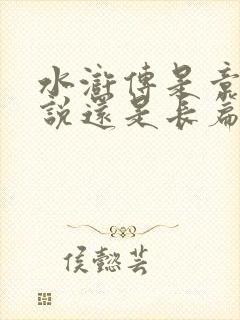 水滸傳是章
說還是長篇
侯懿芸